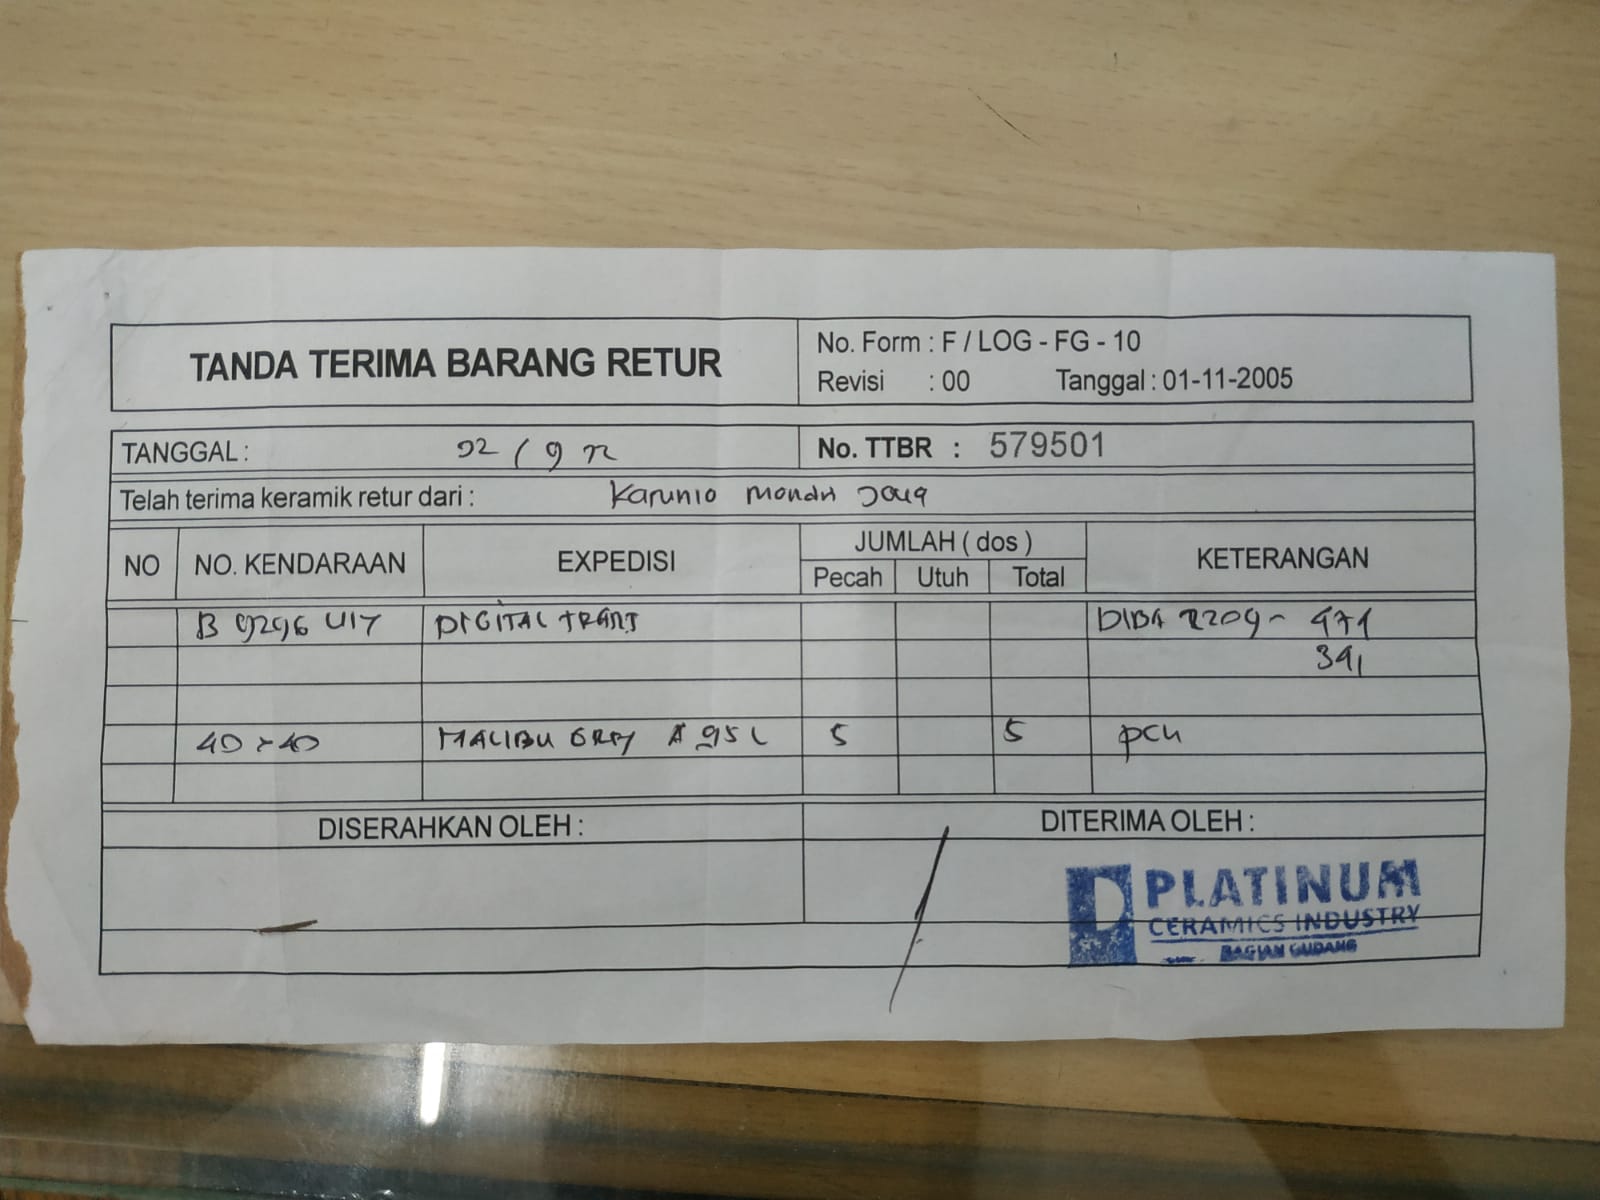 TANDA TERIMA BARANG RETUR
No. Form : F / LOG - FG - 10
Revisi : 00 Tanggal : 01-11-2005
TANGGAL :
No. TTBR : 579501
Telah terima keramik retur dari : Karunia
NO NO. KENDARAAN EXPEDISI JUMLAH ( dos ) KETERANGAN
Pecah Utuh Total
B 9296 DIGITAL DIBA 2209 - 471
391
40 x 40 MALIBU GRY A 95 L 5 5 pch
DISERAHKAN OLEH : DITERIMA OLEH :
PLATINUM
CERAMICS INDUSTRY
BAGIAN GUDANG